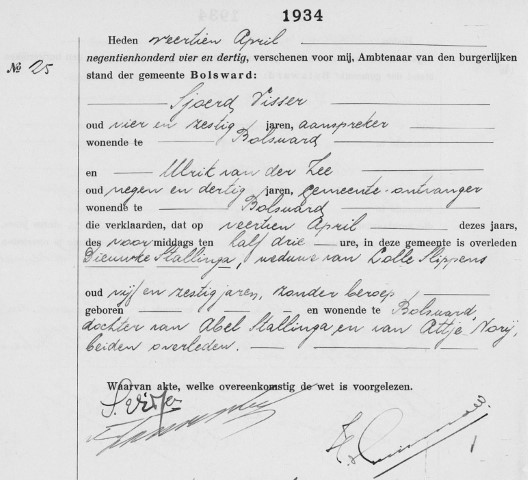 1934
Heden veertien April
negentienhonderd vier en dertig, verschenen voor mij, Ambtenaar van den burgerlijken
№ 25 stand der gemeente Bolsward:
Sjoerd Visser
oud vier en zestig jaren, aanspreker
wonende te Bolsward
en Ulrik van der Zee
oud negen en dertig jaren, gemeente-ontvanger
wonende te Bolsward
die verklaarden, dat op veertien April dezes jaars,
des voormiddags ten half drie ure, in deze gemeente is overleden
Dieuwke Stallinga, weduwe van Lolle Slippens
oud vijf en zestig jaren, zonder beroep
geboren en wonende te Bolsward,
dochter van Abel Stallinga en van Attje Norij,
beiden overleden.
Waarvan akte, welke overeenkomstig de wet is voorgelezen.
S. Visser